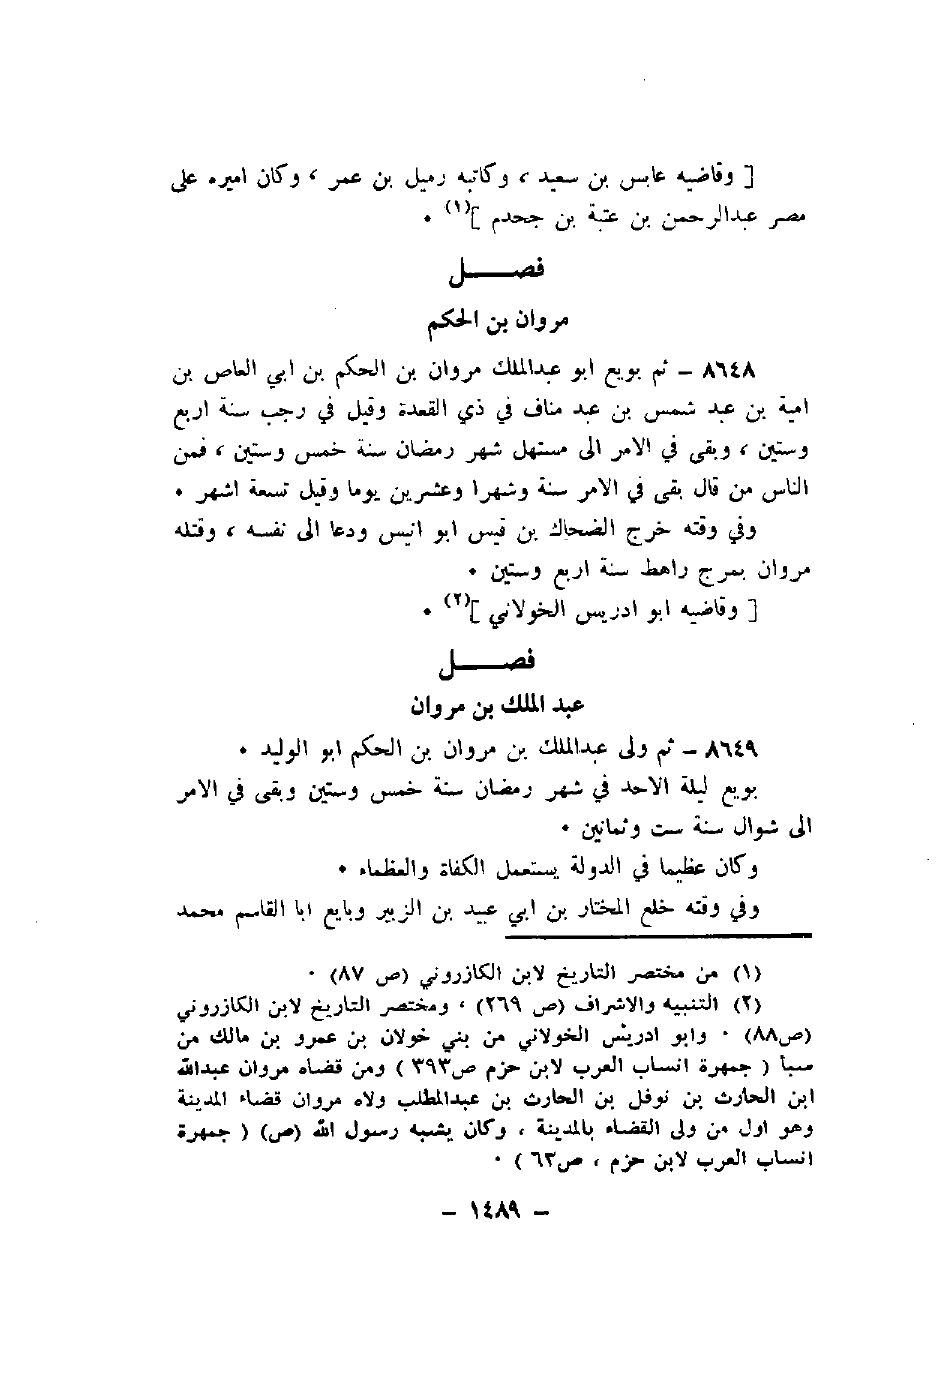 [ وقاضيه عابس بن سعيد ، وكاتبه رميل بن عمر ، وكان اميره على
مصر عبدالرحمن بن عتبة بن جحدم ](١) ٠
فصـــــل
مروان بن الحكم
٨٦٤٨ – ثم بويع ابو عبدالملك مروان بن الحكم بن ابي العاص بن
امية بن عبد شمس بن عبد مناف في ذي القعدة وقيل في رجب سنة اربع
وستين ، وبقى في الامر الى مستهل شهر رمضان سنة خمس وستين ، فمن
الناس من قال بقى في الامر سنة وشهرا وعشرين يوما وقيل تسعة اشهر ٠
وفي وقته خرج الضحاك بن قيس ابو انيس ودعا الى نفسه ، وقتله
مروان بمرج راهط سنة اربع وستين ٠
[ وقاضيه ابو ادريس الخولاني ](٢) ٠
فصـــــل
عبد الملك بن مروان
٨٦٤٩ – ثم ولى عبدالملك بن مروان بن الحكم ابو الوليد ٠
بويع ليلة الاحد في شهر رمضان سنة خمس وستين وبقى في الامر
الى شوال سنة ست وثمانين ٠
وكان عظيما في الدولة يستعمل الكفاة والعظماء ٠
وفي وقته خلع المختار بن ابي عبيد بن الزبير وبايع ابا القاسم محمد
(١) من مختصر التاريخ لابن الكازروني (ص ٨٧) ٠
(٢) التنبيه والاشراف (ص ٢٦٩) ، ومختصر التاريخ لابن الكازروني
(ص٨٨) ٠ وابو ادريس الخولاني من بني خولان بن عمرو بن مالك من
سبأ ( جمهرة انساب العرب لابن حزم ص٣٩٣ ) ومن قضاه مروان عبدالله
ابن الحارث بن نوفل بن الحارث بن عبدالمطلب ولاه مروان قضاء المدينة
وهو اول من ولى القضاء بالمدينة ، وكان يشبه رسول الله (ص) ( جمهرة
انساب العرب لابن حزم ، ص٦٣ ) ٠
– ١٤٨٩ –